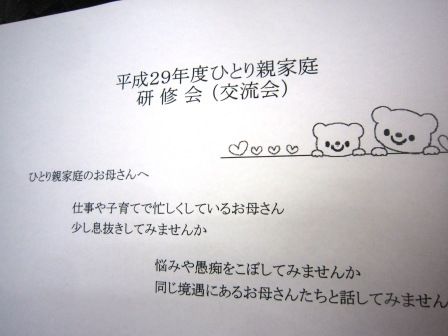 平成29年度ひとり親家庭
研修会（交流会）
ひとり親家庭のお母さんへ
仕事や子育てで忙しくしているお母さん
少し息抜きしてみませんか
悩みや愚痴をこぼしてみませんか
同じ境遇にあるお母さんたちと話してみませんか